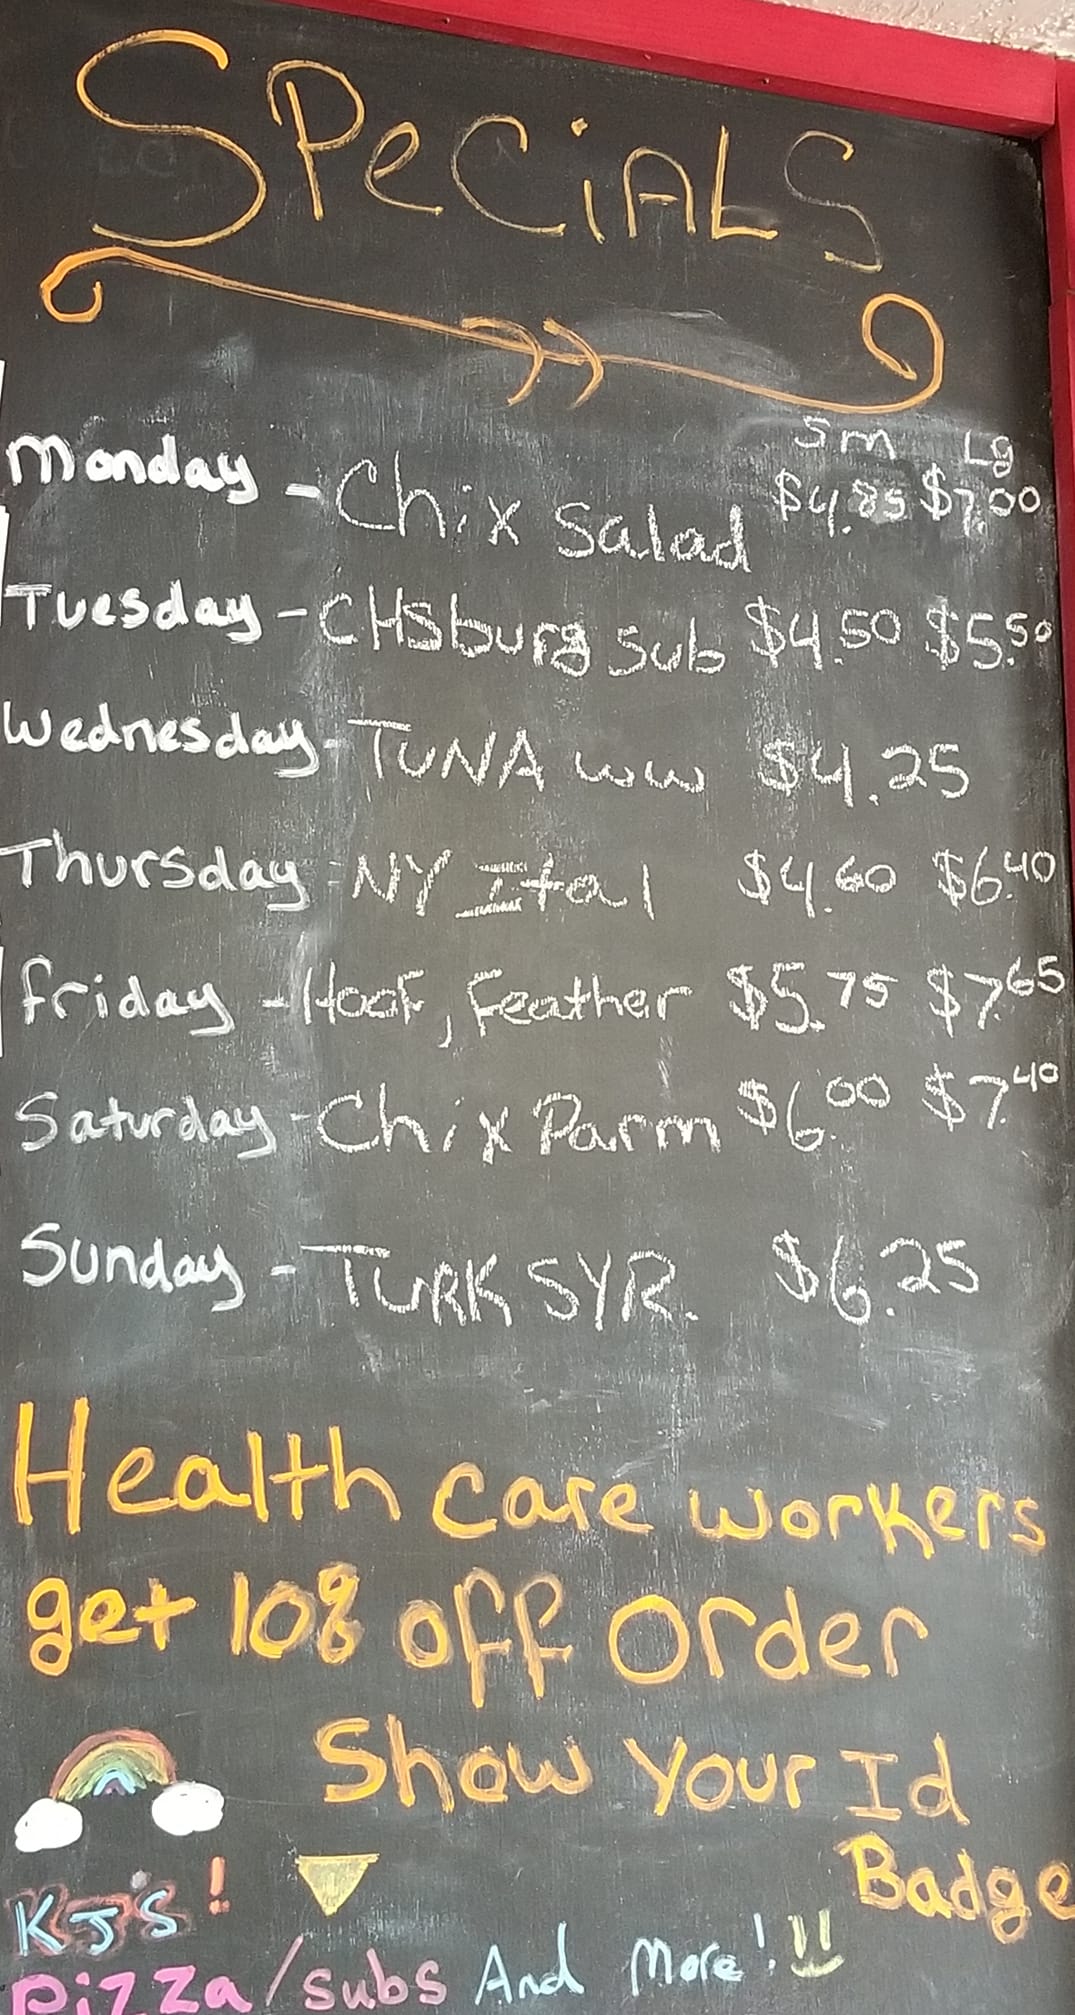 SPeCiALS
Sm Lg
Monday - Chix Salad $4.85 $7.00
Tuesday - CHSburg Sub $4.50 $5.50
Wednesday - TUNA WW $4.25
Thursday - NY Ital $4.60 $6.40
friday - Hoof, Feather $5.75 $7.65
Saturday - Chix Parm $6.00 $7.40
Sunday - TURK SYR. $6.25
Health care workers
get 10% off Order
Show Your Id
Badge
KJ'S!
pizza/subs And More!